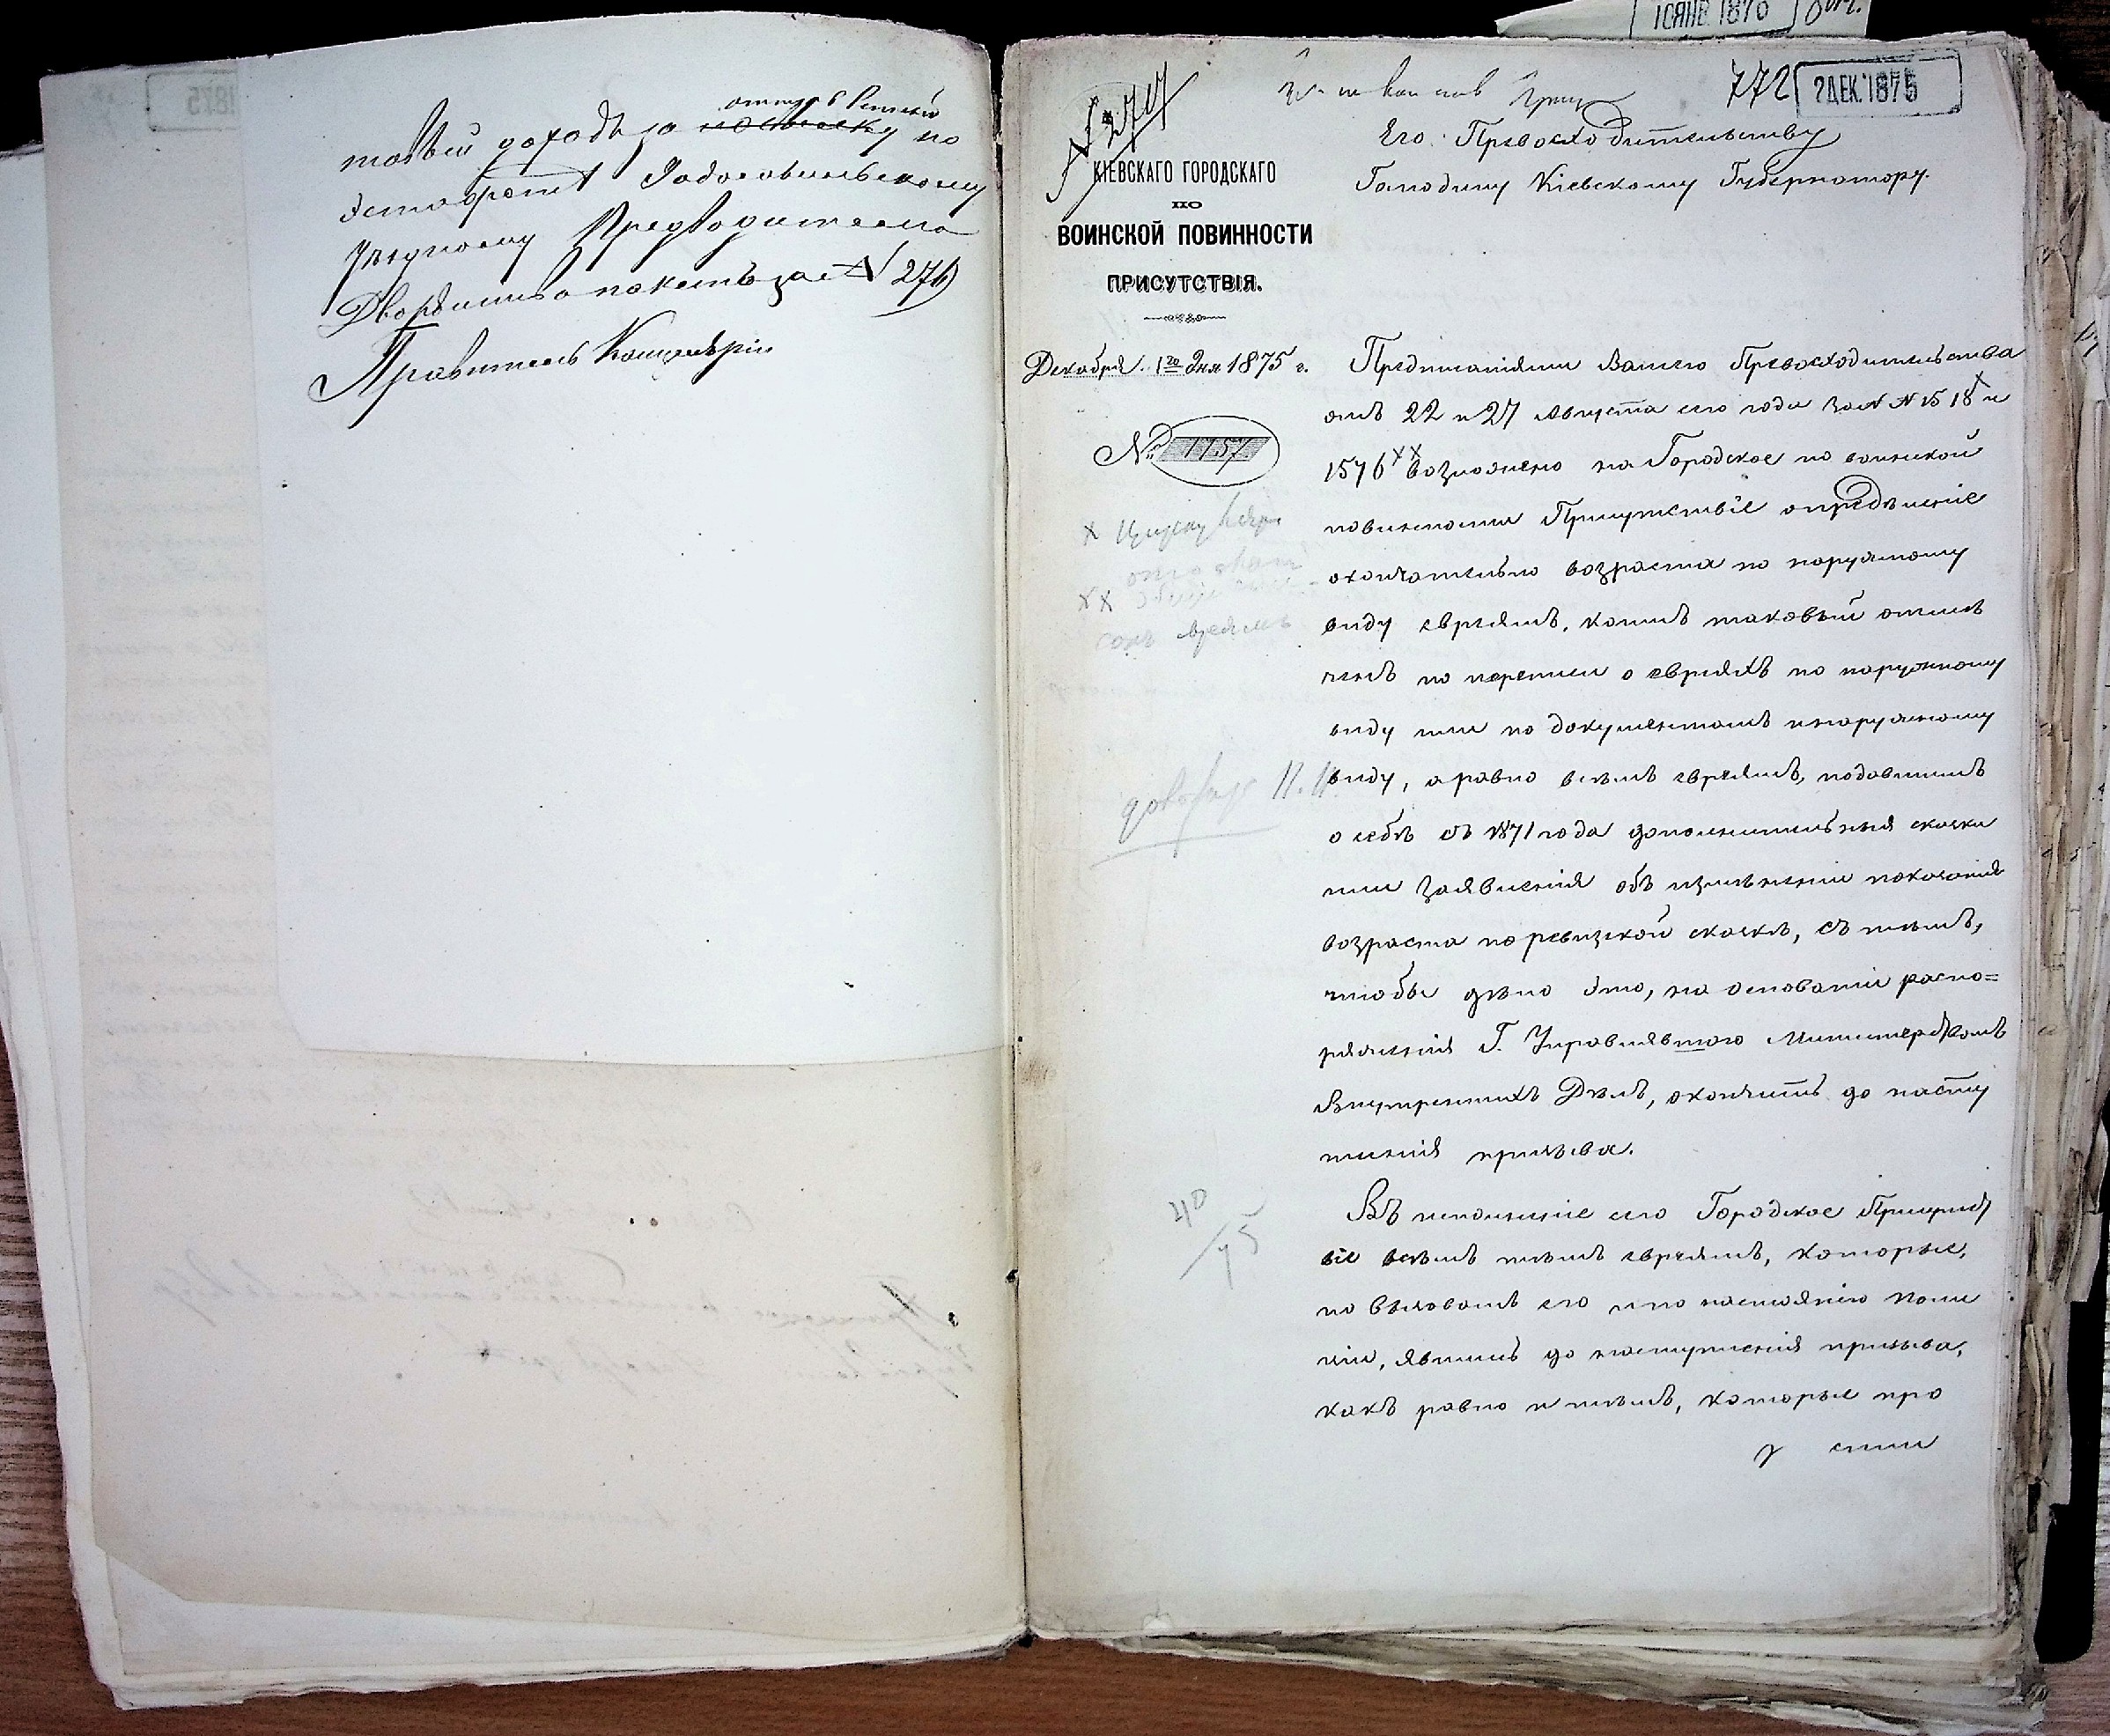 товый доходъ за
эстафетѣ Радомысльскому
Уѣздному Предводителю
Дворянства пакетъ за № 276
Правитель Канцеляріи
10 ЯНВ. 1876
772
2 ДЕК. 1875
Его Превосходительству
Господину Кіевскому Губернатору.
КІЕВСКАГО ГОРОДСКАГО
ПО
ВОИНСКОЙ ПОВИННОСТИ
ПРИСУТСТВІЯ.
Декабря 1го дня 1875 г.
№ 1157
Предписаніями Вашего Превосходительства
отъ 22 и 27 Августа сего года за №№ 1518 х и
1576 хх возложено на Городское по воинской
повинности Присутствіе опредѣленіе
окончательно возраста по наружному
виду евреямъ, коимъ таковый отмѣ
ченъ по переписи о евреяхъ по наружному
виду или по документамъ и наружному
виду, а равно всѣмъ евреямъ, подавшимъ
о себѣ съ 1871 года дополнительныя сказки
или заявленія объ измѣненіи показанія
возраста по ревизской сказкѣ, съ тѣмъ,
чтобы дѣло это, на основаніи распо=
ряженія Г. Управлявшаго Министерствомъ
Внутреннихъ Дѣлъ, окончить до насту
пленія призыва.
Въ исполненіе сего Городское Присутст
віе всѣмъ тѣмъ евреямъ, которые,
по вызовамъ его и по настоянію поли
ціи, явились до наступленія призыва,
какъ равно и тѣмъ, которые про
сили
х
хх
40/75